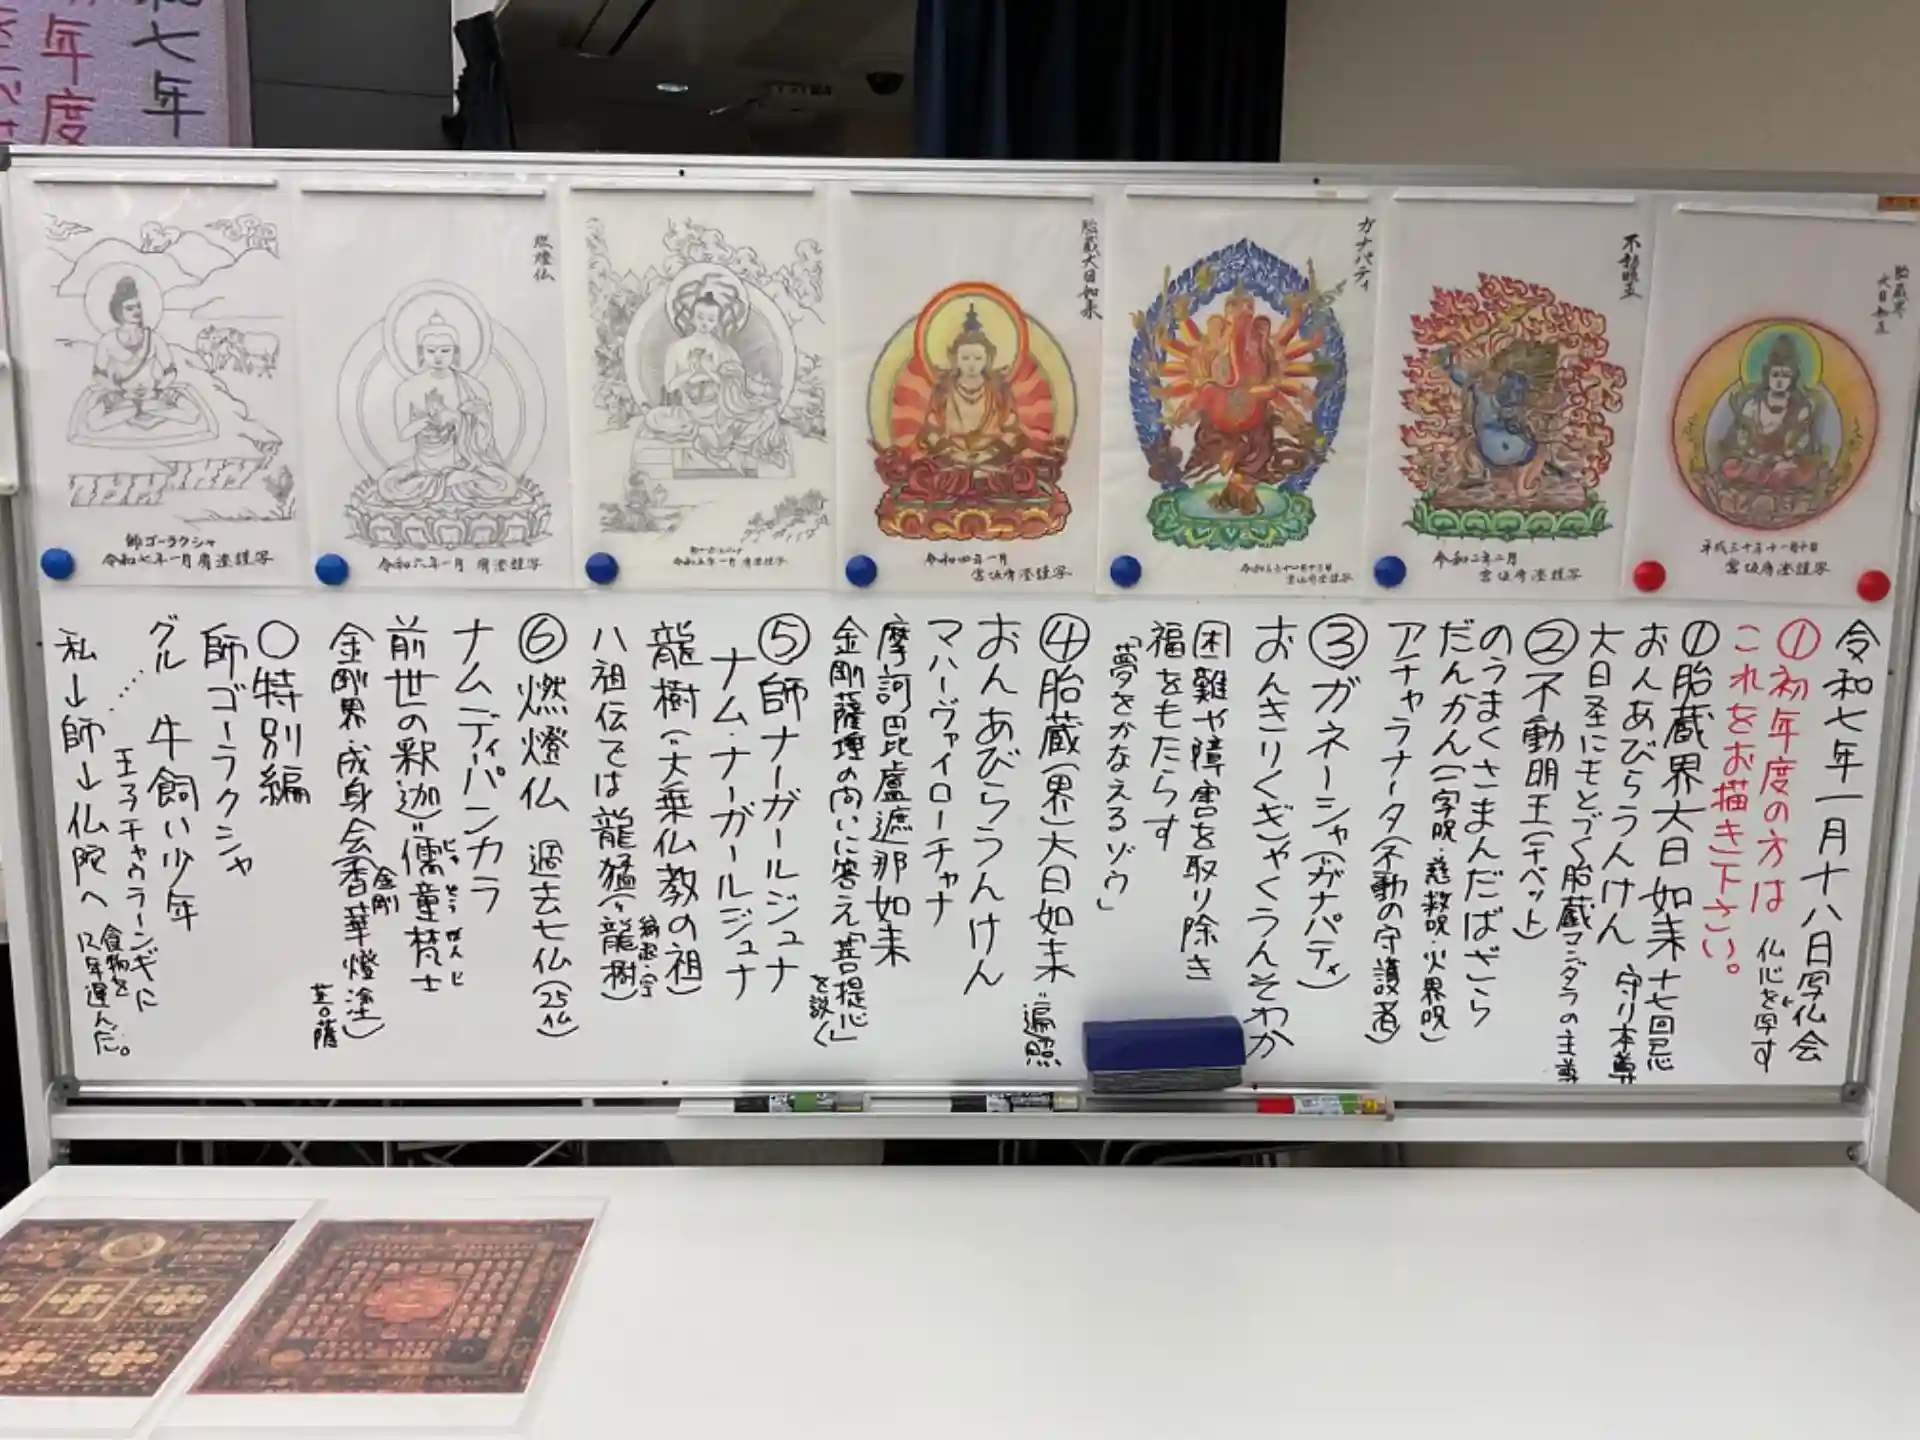 七年
年度
胎蔵界
大日如来
平成三十年十一月十日
宮坂宥澄謹写
不動明王
令和二年二月
宮坂宥澄謹写
ガナパティ
宮坂宥澄謹写
胎蔵大日如来
令和四年一月
宮坂宥澄謹写
令和五年一月 宥澄謹写
燃燈仏
令和六年一月 宥澄謹写
師ゴーラクシャ
令和七年一月 宥澄謹写
令和七年一月十八日写仏会
①初年度の方は 仏心を写す
これをお描き下さい。
①胎蔵界大日如来 十七回忌
おんあびらうんけん 守り本尊
大日圣にもとづく胎蔵マンダラの主尊
②不動明王(チベット)
のうまくさまんだばざら
だんかん(一字呪・慈救呪・火界呪)
アチャラナータ(不動の守護者)
③ガネーシャ(ガナパティ)
おんきりくぎゃくうんそわか
困難や障害を取り除き
福をもたらす
「夢をかなえるゾウ」
④胎蔵(界)大日如来 〝遍照
おんあびらうんけん
マハーヴァイローチャナ
摩訶毘盧遮那如来
金剛薩埵の問いに答え「菩提心」を説く
⑤師ナーガールジュナ
ナム・ナーガールジュナ
龍樹(〝大乗仏教の祖) 縁起・空
八祖伝では龍猛(〝龍樹)
⑥燃燈仏 過去七仏(25仏)
ナムディパンカラ
前世の釈迦〝儒童梵士 じゅどうぼんじ
金剛界・成身会香華燈塗) 金剛 菩薩
○特別編
師ゴーラクシャ
グル 牛飼い少年
王子チャウランギに
食物を
12年運んだ。
私→師→仏陀へ